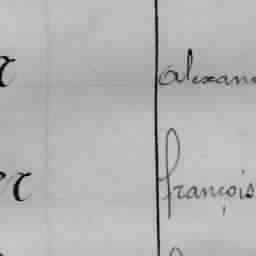 alexan
françois